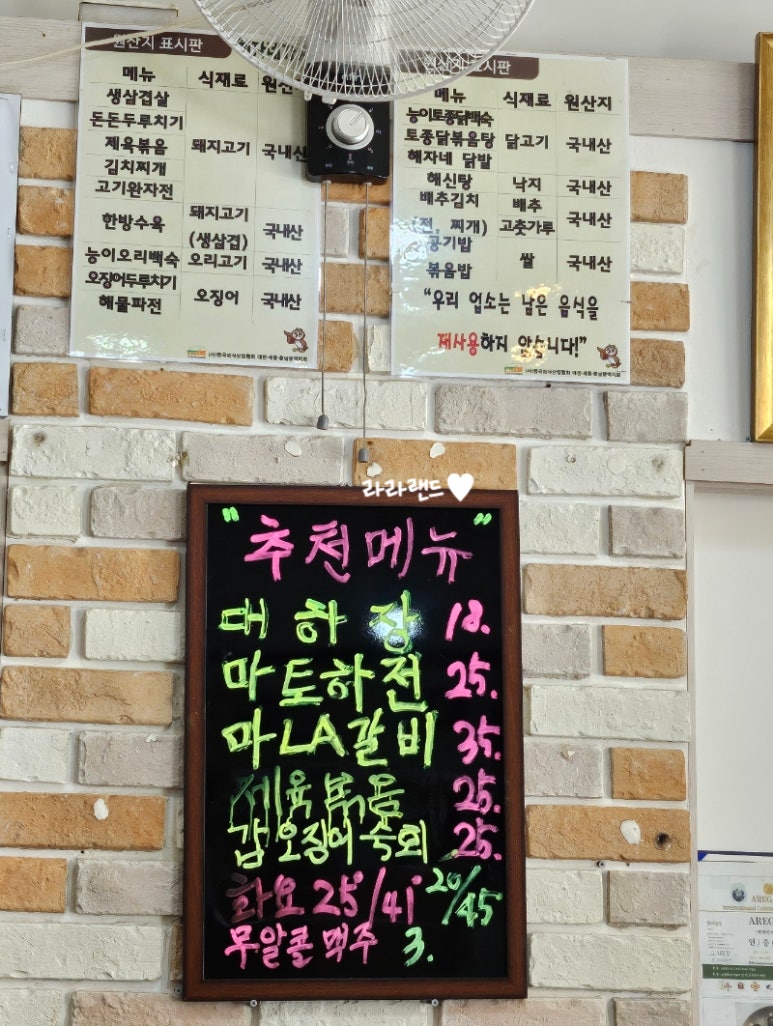 원산지 표시판
메뉴 식재료
생삼겹살
돈돈두루치기
제육볶음 돼지고기 국내산
김치찌개
고기완자전
한방수육 돼지고기
(생삼겹) 국내산
능이오리백숙 오리고기 국내산
오징어두루치기
해물파전 오징어 국내산
(사)한국외식산업협회 대전·세종·충남광역지회
원산지 표시판
메뉴 식재료 원산지
능이토종닭백숙
토종닭볶음탕 닭고기 국내산
해자네 닭발
해신탕 낙지 국내산
배추김치 배추
(전, 찌개) 고춧가루 국내산
공기밥
볶음밥 쌀 국내산
"우리 업소는 남은 음식을
재사용하지 않습니다!"
(사)한국외식산업협회 대전·세종·충남광역지회
라라랜드♥
"추천메뉴"
대하장 18.
마토하전 25.
마LA갈비 35.
제육볶음 25.
갑오징어숙회 25.
화요 25°/41° 20/45
무알콜맥주 3.
AREG